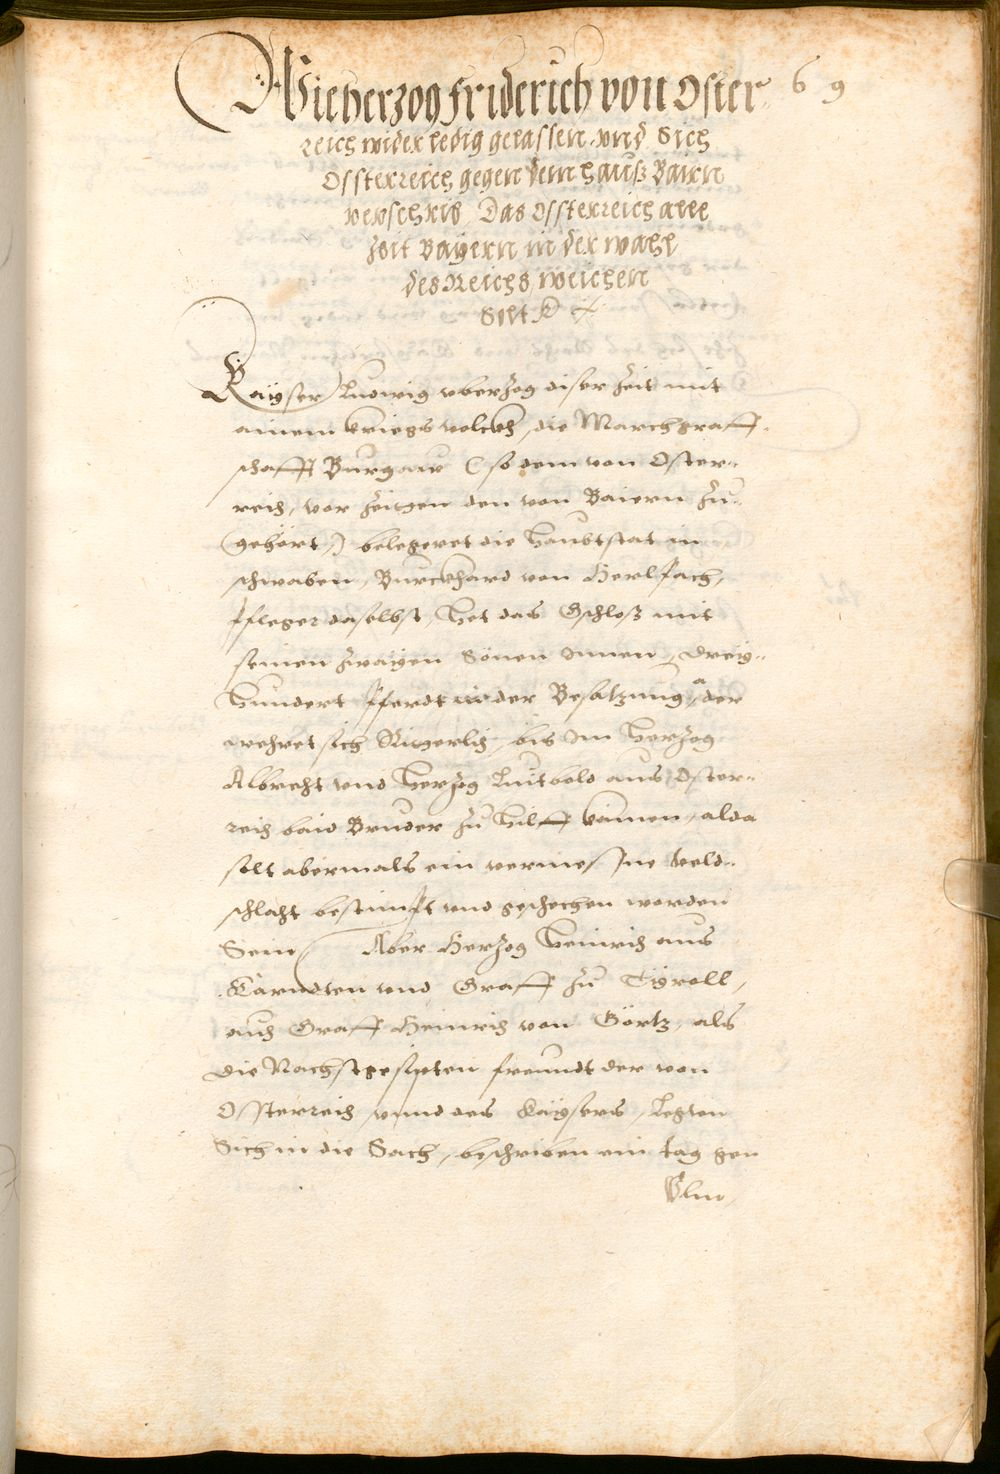 Wie herzog Friderich von Oster
69
reich wider ledig gelassen, vnd Sich
Ossterreich gegen dem hauß Bairn
verschrib, Das Ossterreich alle
zeit Bayern in der wahl
des Reichs weichen
Solt
Kayser Ludwig vberzog diser Zeit mit
ainem kriegs volckh, die Marchgraff-
schafft Burgaw (so dem von Oster-
reich, vor Zeitten den von Baiern zu-
gehört,) belegeret die Haubtstat in
schwaben, Burckhard von
Pfleger daselbst, Het das Gschloß mit
seinen zwaijen Sönen Innen, Dreij-
hundert Pferdt in der Besatzung, der
wehret sich Ritterlich, bis Im Herzog
Albrecht vnd Herzog Luitbold aus Oster-
reich baid Brueder zu Hilff kamen, alda
solt abermals ein vermessne veld-
schlacht bestimpt vnd geschechen worden
Sein Aber Herzog Heinrich aus
Kärndten vnd Graff zu Tÿroll,
auch Graff Heinrich von Görtz, als
die Nachstgesipten freundt der von
Ossterreich, vnnd des Kaysers, Legten
Sich in die Sach, beschriben ein tag gen
Vlm,